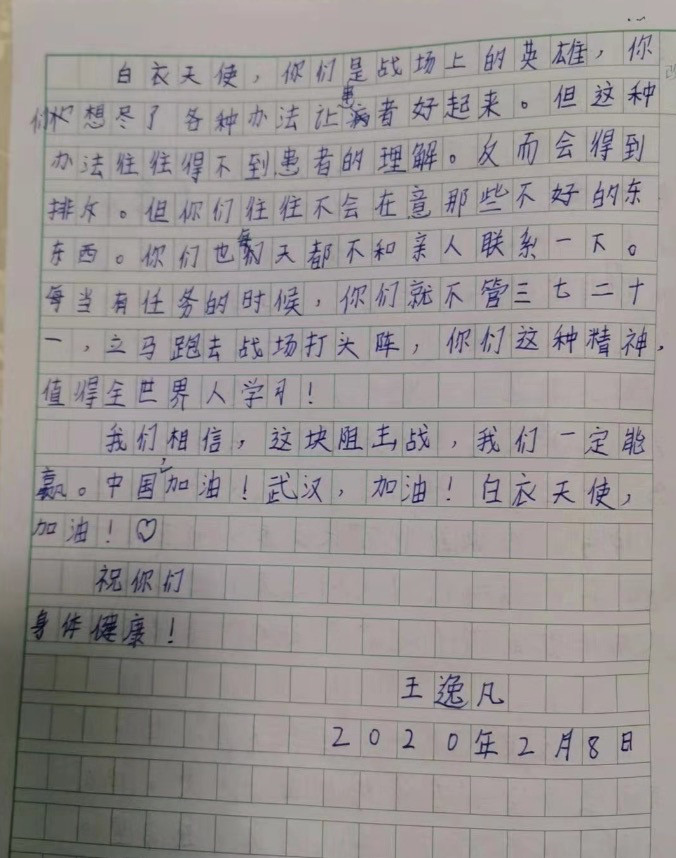 白衣天使，你们是战场上的英雄，你
们想尽了各种办法让患者好起来。但这种
办法往往得不到患者的理解。反而会得到
排斥。但你们往往不会在意那些不好的东
东西。你们也每天都不和亲人联系一下。
每当有任务的时候，你们就不管三七二十
一，立马跑去战场打头阵，你们这种精神，
值得全世界人学习！
我们相信，这块阻击战，我们一定能
赢。中国，加油！武汉，加油！白衣天使，
加油！♡
祝你们
身体健康！
王逸凡
2020年2月8日